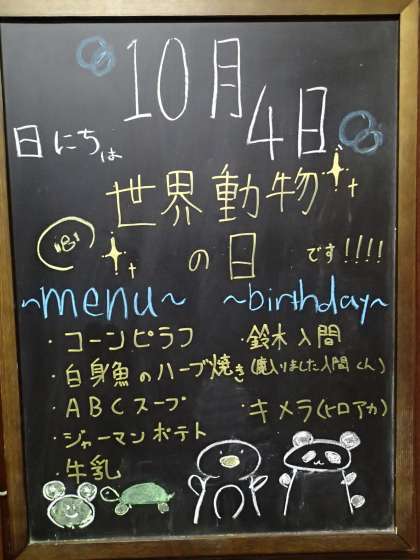 10月
4日
日にちは
世界動物
の日
です!!!!
~menu~
・コーンピラフ
・白身魚のハーブ焼き
・ABCスープ
・ジャーマンポテト
・牛乳
~birthday~
・鈴木入間
(魔入りました入間くん)
・キメラ(ヒロアカ)